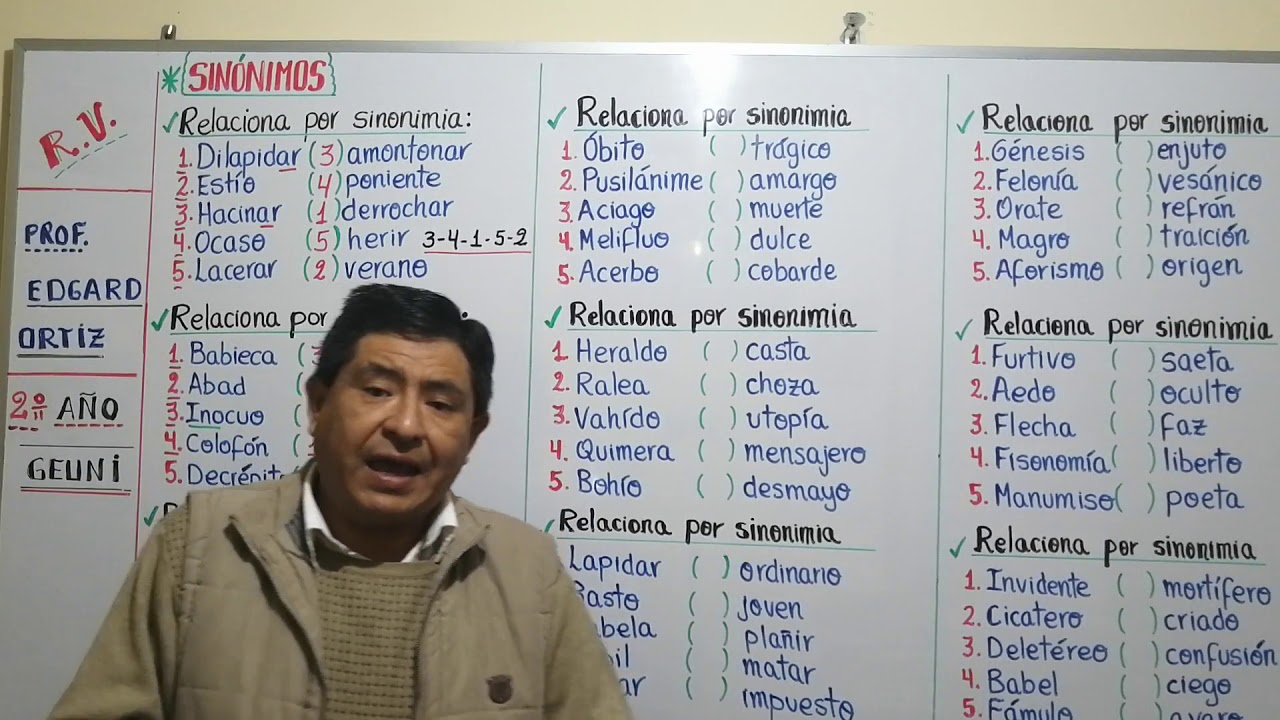 R.V.
PROF.
EDGARD
ORTIZ
2º AÑO
GEUNI
* SINÓNIMOS
✓Relaciona por sinonimia:
1. Dilapidar (3) amontonar
2. Estío (4) poniente
3. Hacinar (1) derrochar
4. Ocaso (5) herir 3-4-1-5-2
5. Lacerar (2) verano
✓Relaciona por
1. Babieca (
2. Abad
3. Inocuo (
4. Colofón (
5. Decrépit
✓
✓ Relaciona por sinonimia
1. Óbito ( ) trágico
2. Pusilánime ( ) amargo
3. Aciago ( ) muerte
4. Melifluo ( ) dulce
5. Acerbo ( ) cobarde
✓ Relaciona por sinonimia
1. Heraldo ( ) casta
2. Ralea ( ) choza
3. Vahído ( ) utopía
4. Quimera ( ) mensajero
5. Bohío ( ) desmayo
✓ Relaciona por sinonimia
Lapidar ( ) ordinario
Basto ( ) joven
( ) plañir
( ) matar
( ) impuesto
✓ Relaciona por sinonimia
1. Génesis ( ) enjuto
2. Felonía ( ) vesánico
3. Orate ( ) refrán
4. Magro ( ) traición
5. Aforismo ( ) origen
✓ Relaciona por sinonimia
1. Furtivo ( ) saeta
2. Aedo ( ) oculto
3. Flecha ( ) faz
4. Fisonomía ( ) liberto
5. Manumiso ( ) poeta
✓ Relaciona por sinonimia
1. Invidente ( ) mortífero
2. Cicatero ( ) criado
3. Deletéreo ( ) confusión
4. Babel ( ) ciego
5. Fámulo ( ) avaro